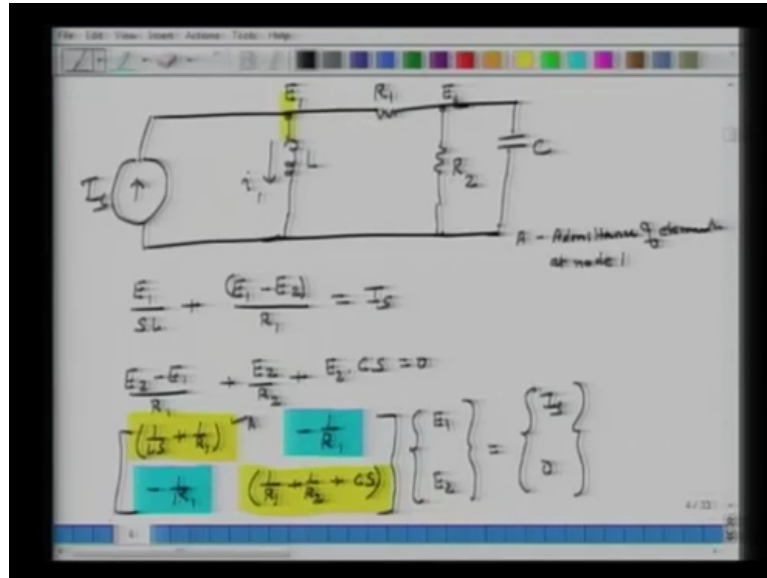 File Edit View Insert Actions Tools Help
E₁ R₁ E₂
I_s i₁ L R₂ C
A - Admittance of elements
at node 1
E₁/SL + (E₁ - E₂)/R₁ = I_s
(E₂ - E₁)/R₁ + E₂/R₂ + E₂ . CS = 0
[ (1/LS + 1/R₁) A -1/R₁ ] { E₁ } = { I_s }
[ -1/R₁ (1/R₁ + 1/R₂ + CS) ] { E₂ } { 0 }